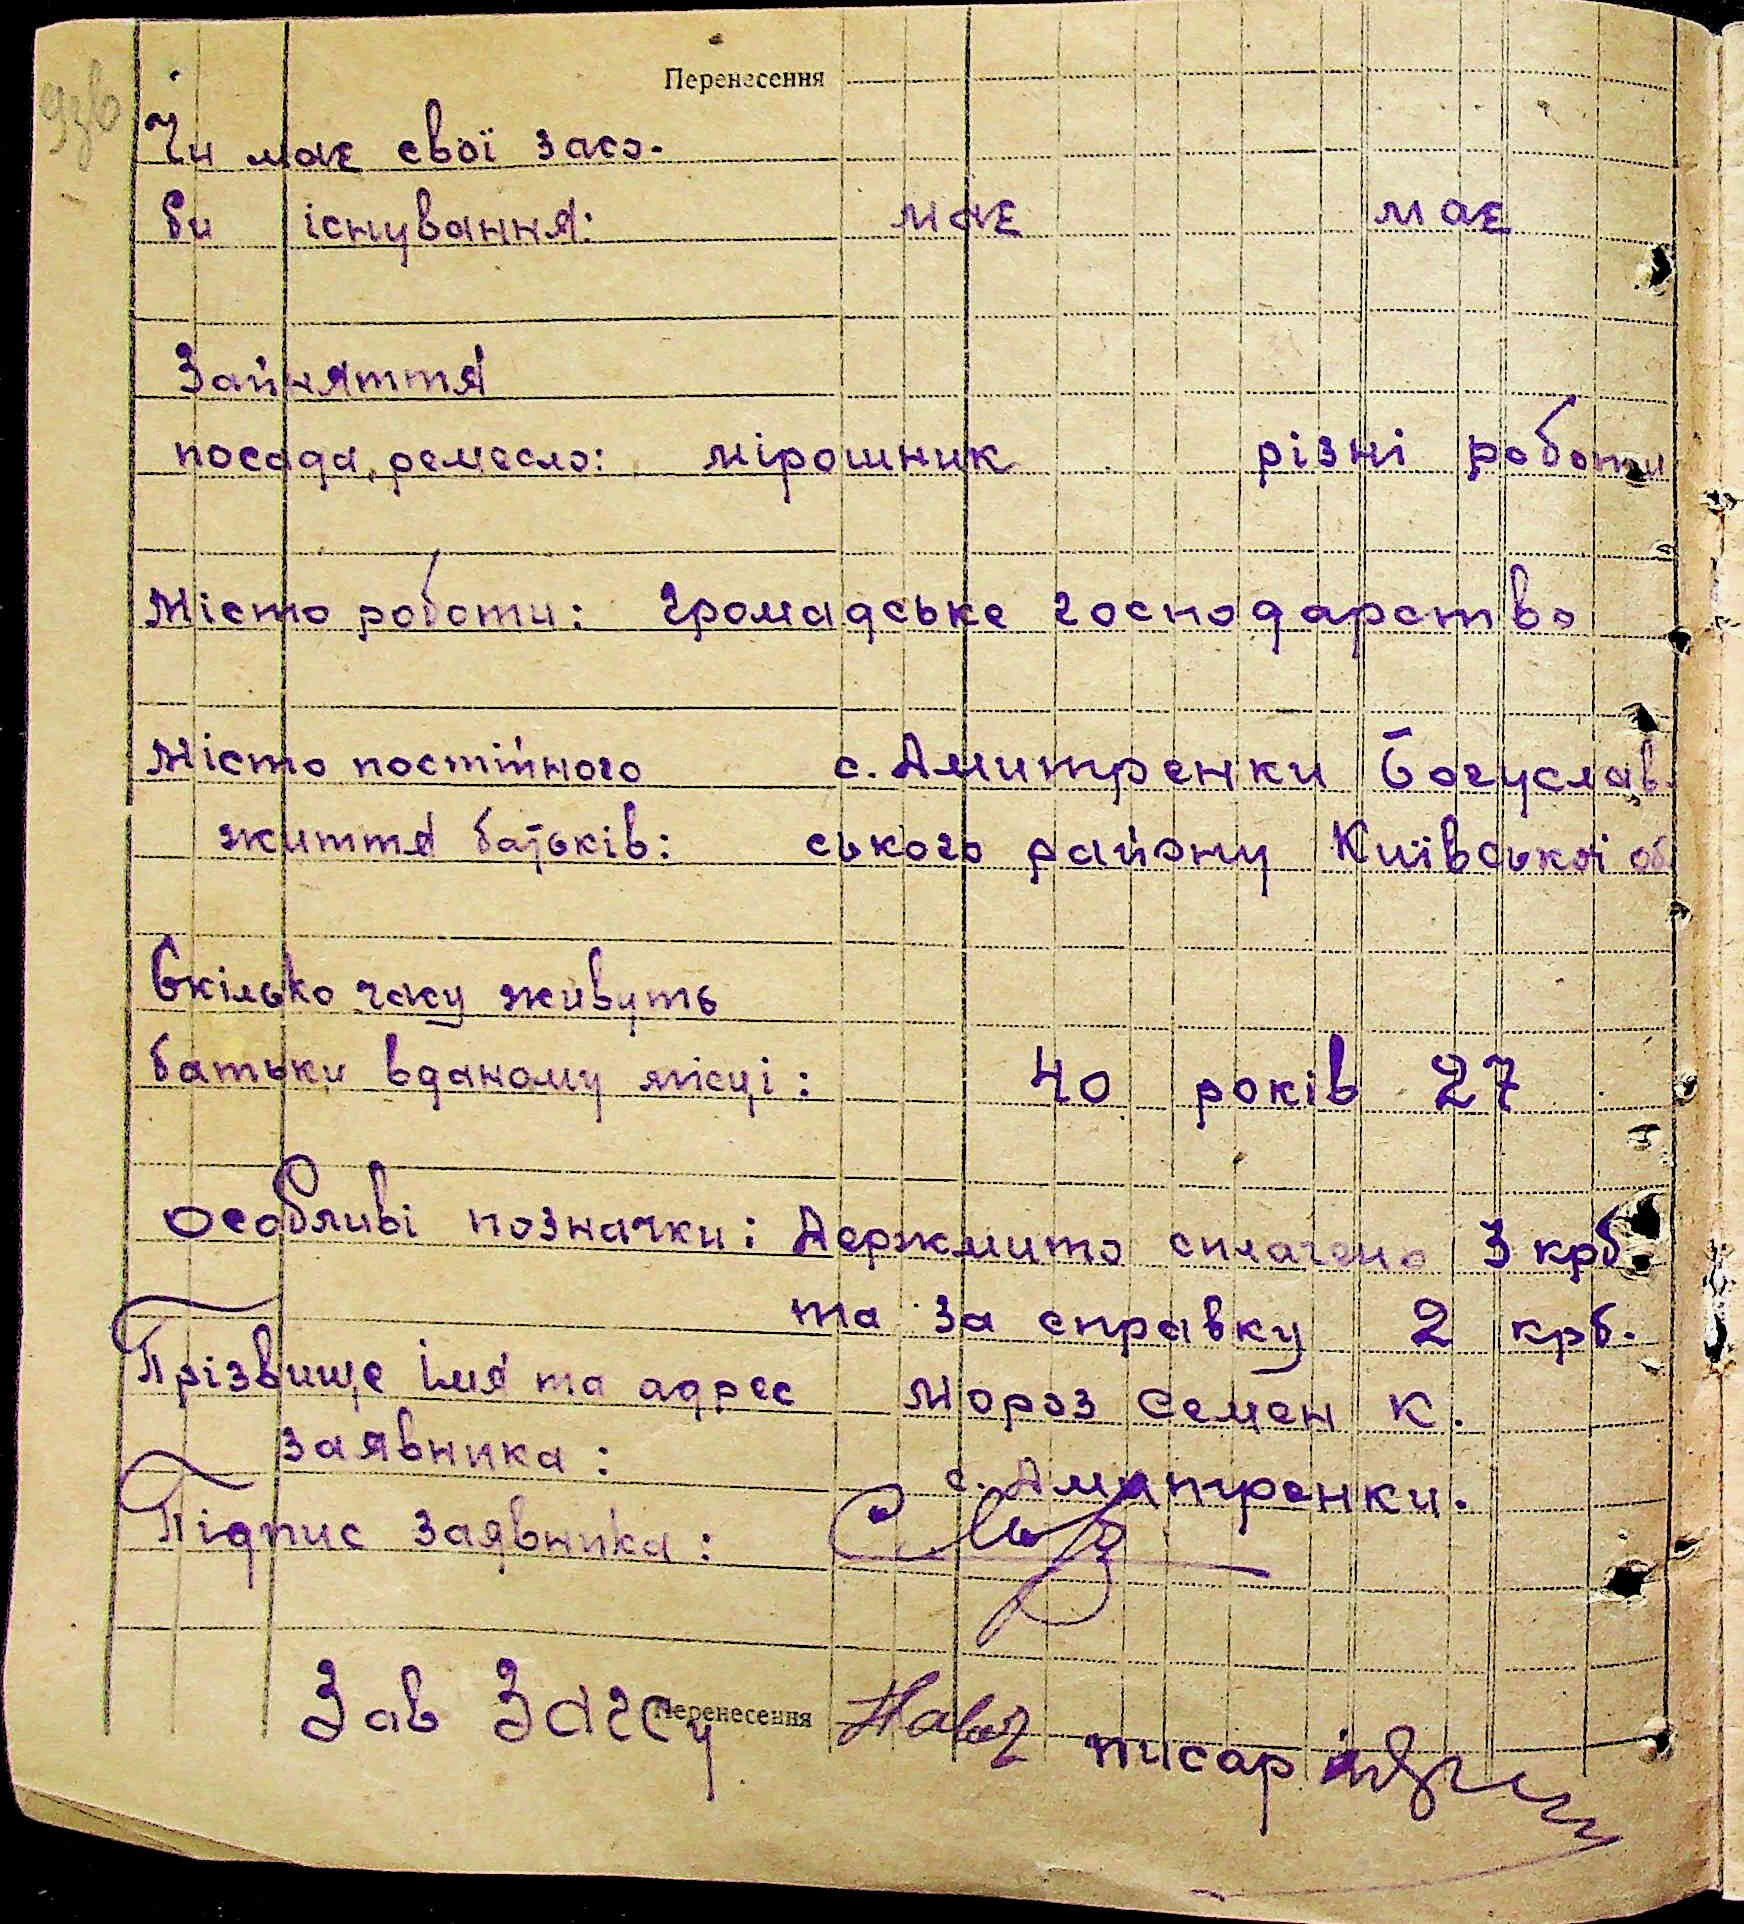 Перенесення
Чи має свої засо-
би існування: має має
Зайняття
посада, ремесло: мірошник різні роботи
Місто роботи: громадське господарство
Місто постійного с. Дмитренки Богуслав-
життя батьків: ського району Київської об
Скілько часу живуть
батьки вданому місці: 40 років 27
Особливі позначки: Держмито сплачено 3 крб
та за справку 2 крб.
Прізвище імя та адрес Мороз Семен К.
заявника: с. Дмитренки.
Підпис заявника:
Зав Загсу Перенесення писар